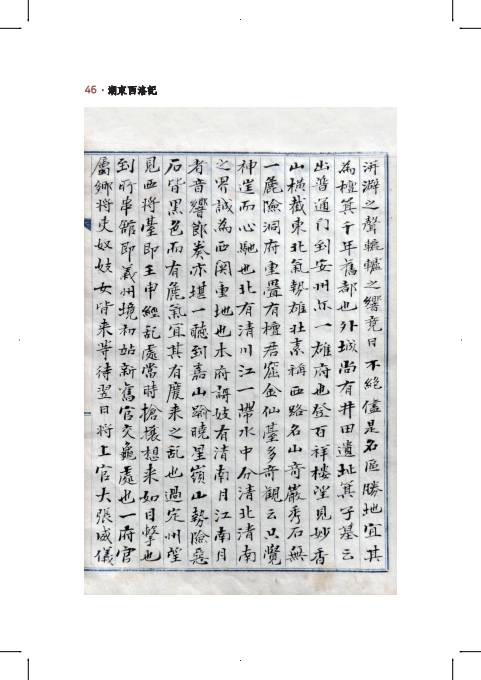 46 · 湖東西洛記
洴澼之聲轆轤之響竟日不絶儘是名區勝地宜其
為檀箕千年舊都也外城尚有井田遺址箕子墓云
出普通門到安州亦一雄府也登百祥樓望見妙香
山橫截東北氣勢雄壯素稱西路名山奇巖秀石無
一麁險洞府重疊有檀君窟金仙臺多奇觀云只覽
神崖而心馳也北有清川江一帶水中分清北清南
之界誠為西関重地也本府詩妓有清南月江南月
者音響節奏亦堪一聽到嘉山踰曉星嶺山勢險惡
石皆黑色而有麁氣宜其有度来之乱也過定州望
見西將臺即壬申經乱處當時搶攘想来如目擊也
到所串舘即義州境初站新舊官交龜處也一府官
屬鄉將吏奴妓女皆来等待翌日將上官大張威儀